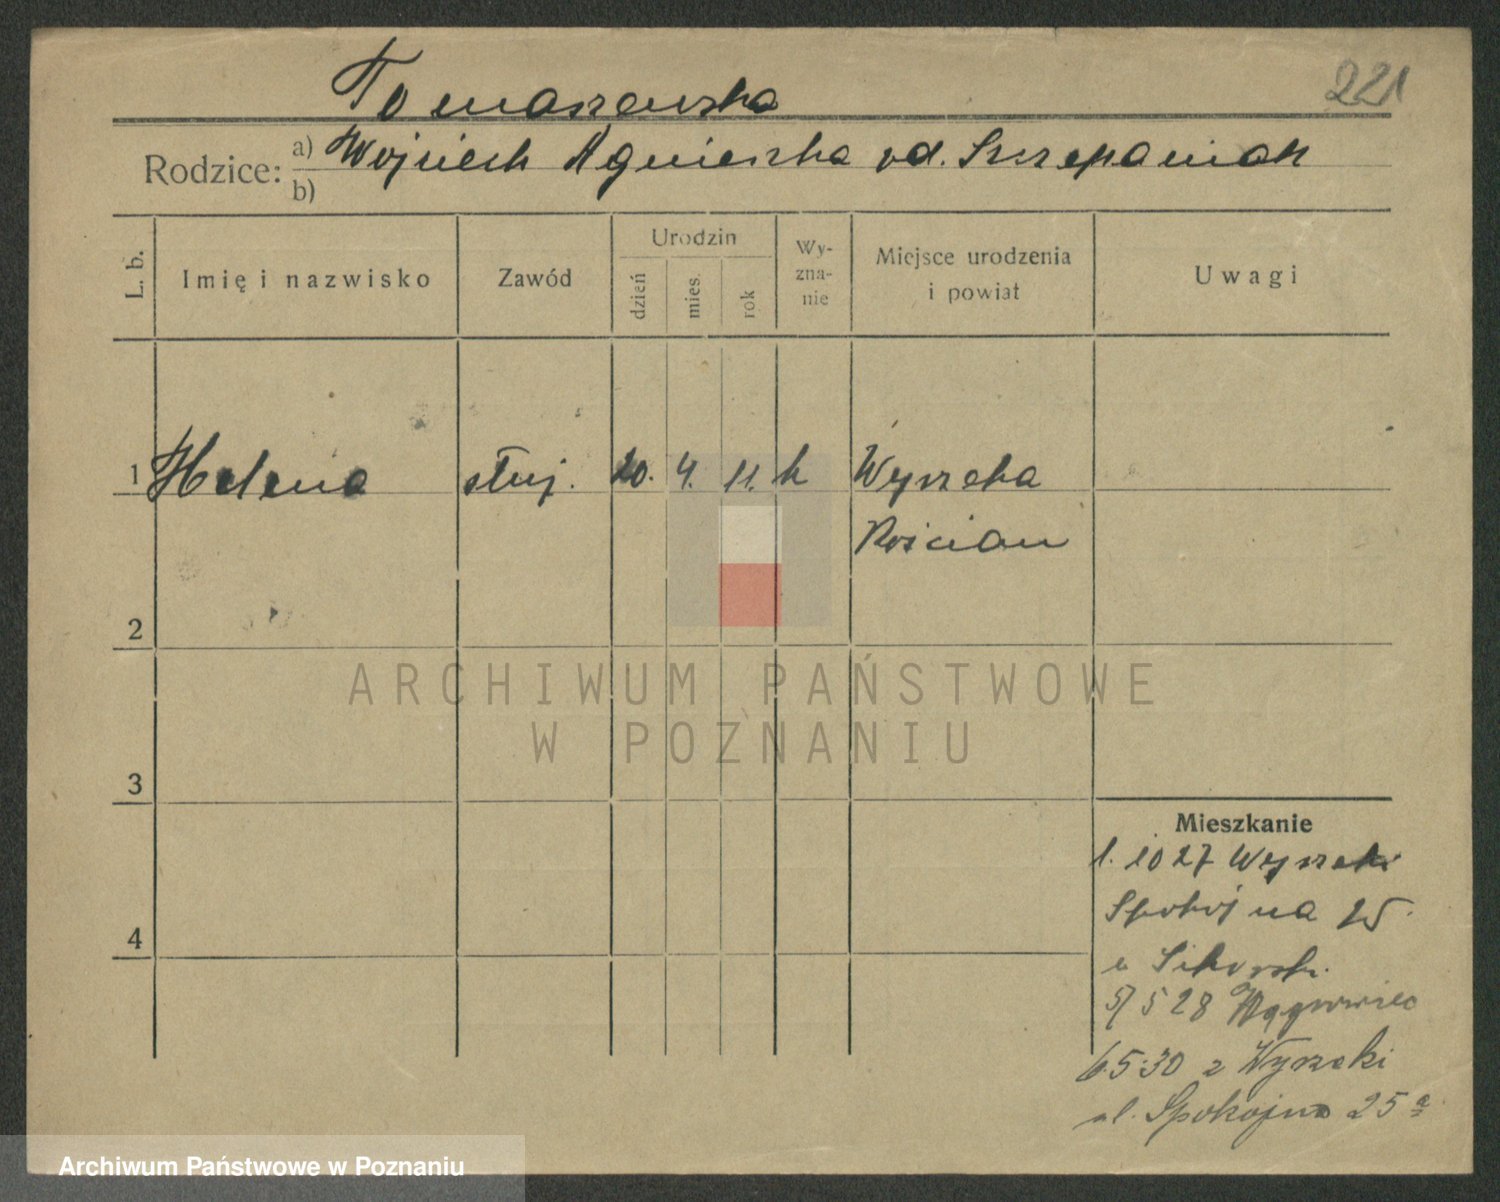 221
Tomaszewska
Rodzice: a) Wojciech Agnieszka od. Szczepaniak
b)
L. b. Imię i nazwisko Zawód Urodzin dzień mies. rok Wy-zna-nie Miejsce urodzenia i powiat Uwagi
1 Helena służ. 20. 4. 11. k Wyrzeka
Kościan
2
3
4
Mieszkanie
1. 10 27 Wyrzeki
Spokojna 25
u Sikorski
5/5 28 Wągrowiec
6.5.30 z Wyrzeki
ul. Spokojna 25 a
ARCHIWUM PAŃSTWOWE
W POZNANIU
Archiwum Państwowe w Poznaniu